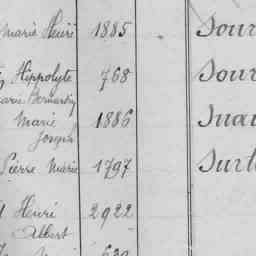 Marie Henri 1885 Sour
Hippolyte 768 Sour
Marie Bernardin
Marie 1886
Joseph
Pierre Marie 1797 Surl
Henri 2922
Albert
630